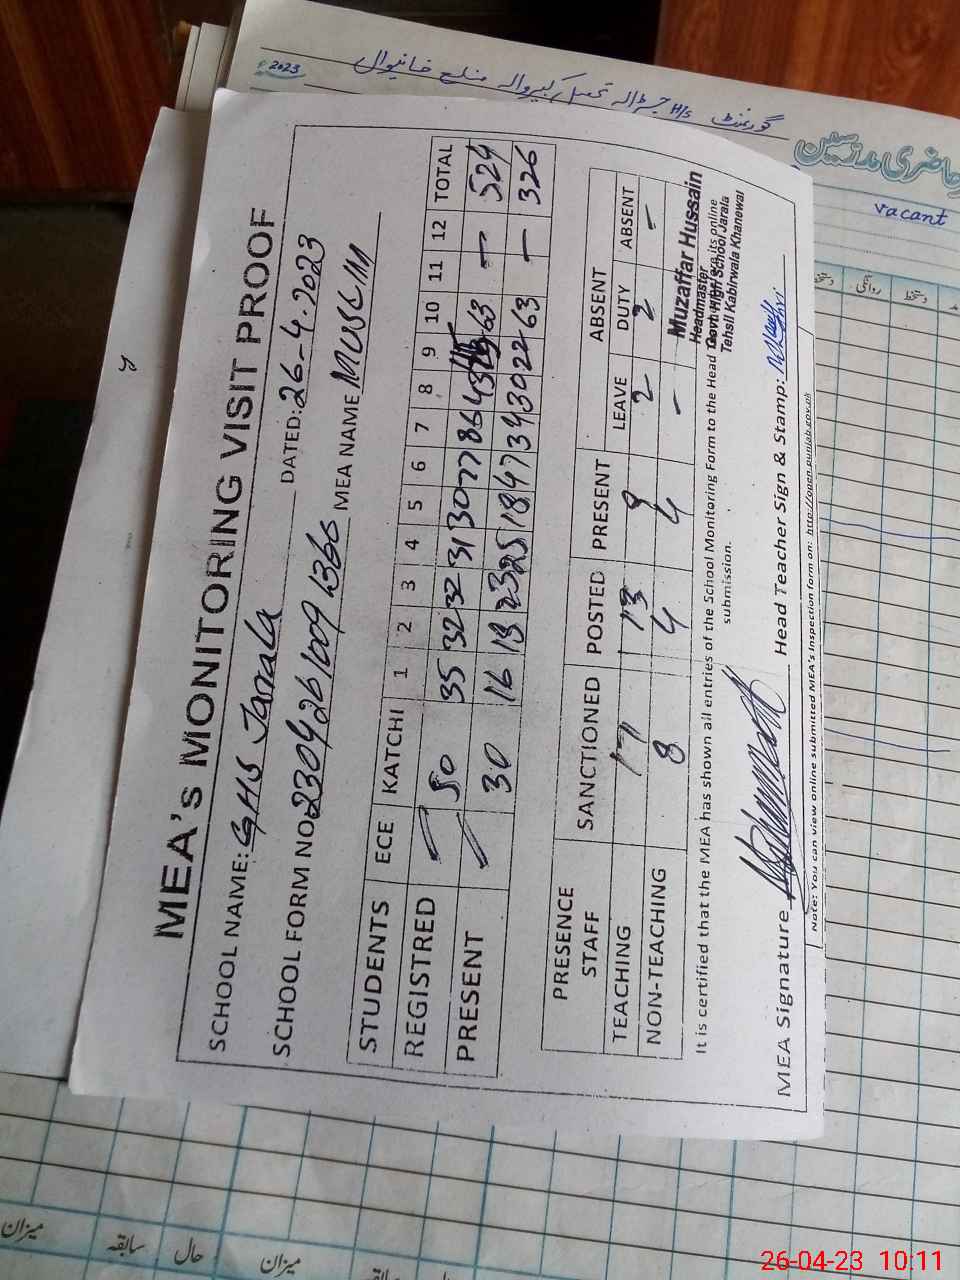 2023ء
گورنمنٹ H/S جڑالہ تحصیل کبیروالہ ضلع خانیوال
حاضری مدرسین
vacant
روانگی دستخط
MEA's MONITORING VISIT PROOF
SCHOOL NAME: GHS Jarala DATED: 26-4.2023
SCHOOL FORM NO 2304261009 1366 MEA NAME MUSLIM
STUDENTS ECE KATCHI 1 2 3 4 5 6 7 8 9 10 11 12 TOTAL
REGISTRED 50 35 32 32 31 30 77 86 43 45 63 — 524
PRESENT 30 16 18 23 25 18 47 34 30 22 63 — 326
PRESENCE STAFF SANCTIONED POSTED PRESENT ABSENT
LEAVE DUTY ABSENT
TEACHING 17 13 9 2 2 -
NON-TEACHING 8 4 4 -
It is certified that the MEA has shown all entries of the School Monitoring Form to the Head before its online
submission.
Muzaffar Hussain
Headmaster
Govt. High School Jarala
Tehsil Kabirwala Khanewal
MEA Signature Head Teacher Sign & Stamp:
Note: You can view online submitted MEA's inspection form on: http://open.punjab.gov.pk
میزان
سابقہ
حال
میزان
26-04-23 10:11